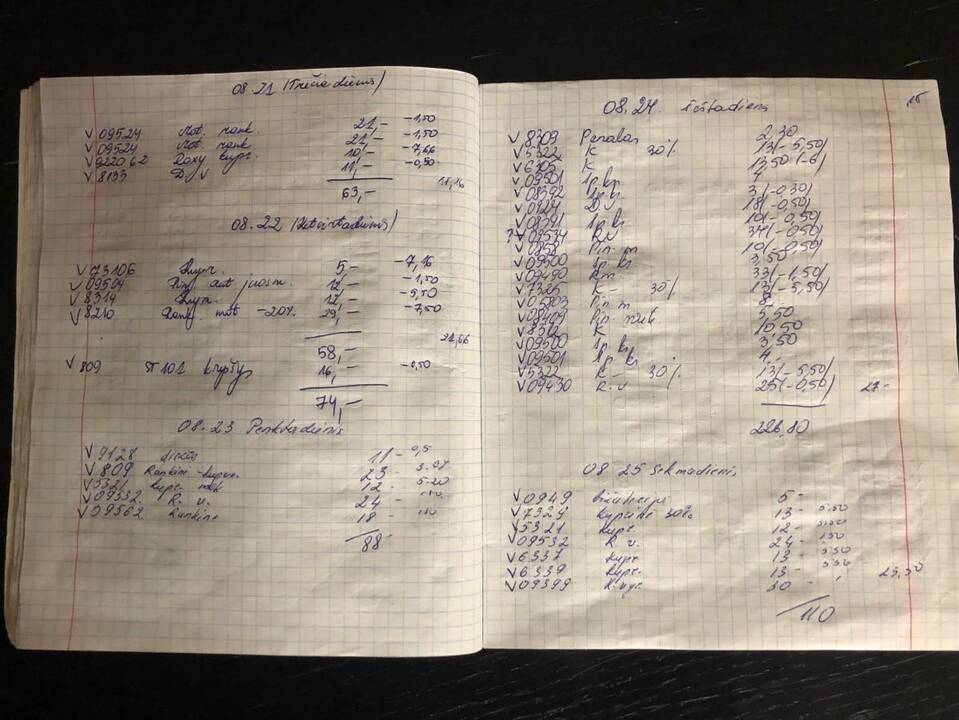 08.21 (Trečiadienis)
V 09524 Mot. rank. 21,- -1,50
V 09524 Mot. rank 21,- -1,50
V 922062 Doxy kupr. 10,- -7,66
V 8133 D.v 11,- -0,50
63,- 11,16
08.22 (Ketvirtadienis)
V 73106 5,- -7,16
V 09504 juosm. 12,- -1,50
V 8314 12,- -5,50
V 8210 mot -20% 29,- -7,50
58,- 21,66
V 809 ST 101 kryžys 16,- -0,50
74,-
08.23 Penktadienis
V 9128 11- 0,5
V 809 Rankinė -kupr. 23-
V 5321 kupr. 12- 5.20
V 09532 R. v. 24-
V 09562 Rankinė 18-
88-
08.24. šeštadienis 15
V 8309 Penalas 2,30
V 5322 K 30% 13(-5,50)
V 6105 K 13,50 (-6)
V 09501 1p. kr. 4
V 08392 3(-0,30)
V 0824 D.v 18(-0,50)
V 08391 1p. kr 10(-0,50)
V 09534 34(-0,50)
V 0852 Pin. m 10(-0,50)
V 09500 1p. kr 3,50
V 09490 R.m 33(-1,50)
V 7325 K- 30% 13(-5,50)
V 05803 Pin m 8.
V 08409 Pin 5,50
V 8312 K 10,50
V 09500 1p. kr 3,50
V 09501 1p. kr. 4-
V 5322 K- 30% 13(-5,50)
V 09430 R.v 25(-0,50) 27-
226,80
08 25 Sekmadienis
V 0949 bižuterija 5-
V 7324 kuprinė 30% 13- 5.50
V 5321 kupr. 12- 5.50
V 09532 R v. 24- 1.50
V 6337 kupr. 13- 5.50
V 6339 kupr. 13- 5.50 23,50
V 09399 30-
110